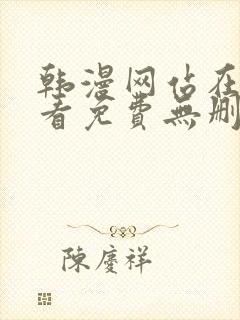 韩漫网站在
看免費無删
陳慶祥